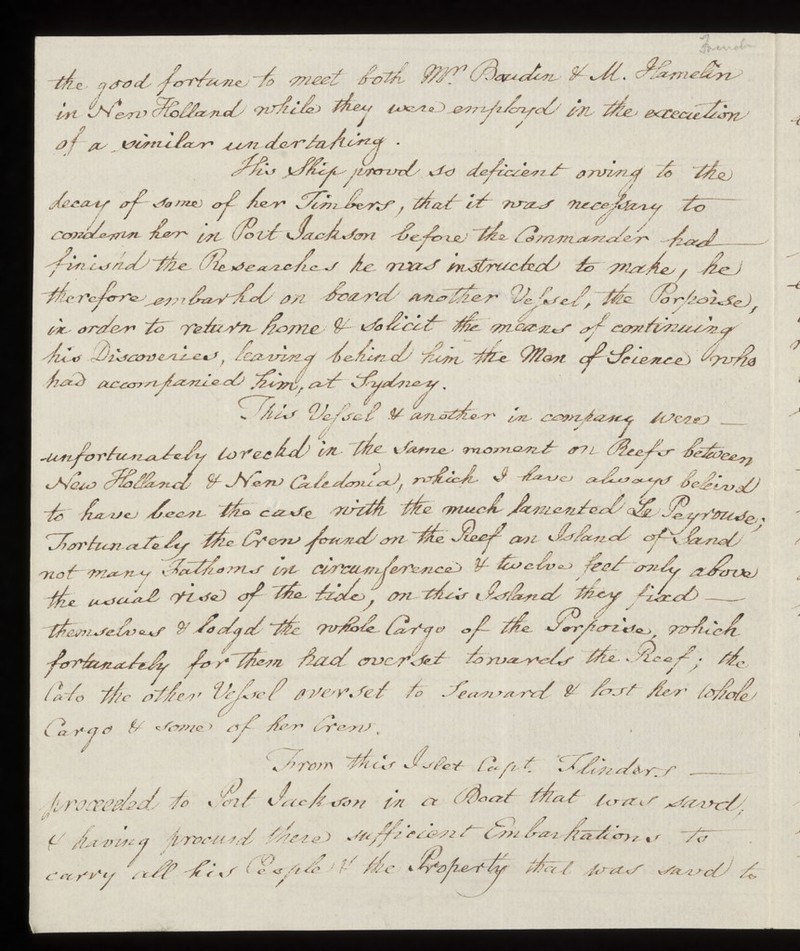 French
the good fortune to meet both Mr. Baudin & M. Hamelin
in New Holland while they were employd in the execution
of a similar undertaking.
His Ship provd so deficient owing to the
decay of some of her Timbers, that it was necessary to
condemn her in Port Jackson before the Commander had
finishd the Researches he was instructed to make, he
therefore embarkd on board another Vessel, the Porpoise,
in order to return home & solicit the means of continuing
his Discoveries, leaving behind him the Men of Science who
had accompanied him, at Sydney.
This Vessel & another in company were
unfortunately wreckd in the same moment on Reefs between
New Holland & New Caledonia, which I have always beleivd
to have been the case with the much lamented La Peyrouse;
Fortunately the Crew found on the Reef an Island of Sand
not many Fathoms in circumference & twelve feet only above
the usual rise of the tide, on this Island they fixd
themselves & lodgd the whole Cargo of the Porpoise, which
fortunately for them had overset towards the Reef; the
Cato the other Vessel overset to Seaward & lost her whole
Cargo & some of her Crew.
From this Islet Capt. Flinders
proceeded to Port Jackson in a Boat that was savd,
& having procurd there sufficient Embarkations to
carry all his People & the Property that was savd to